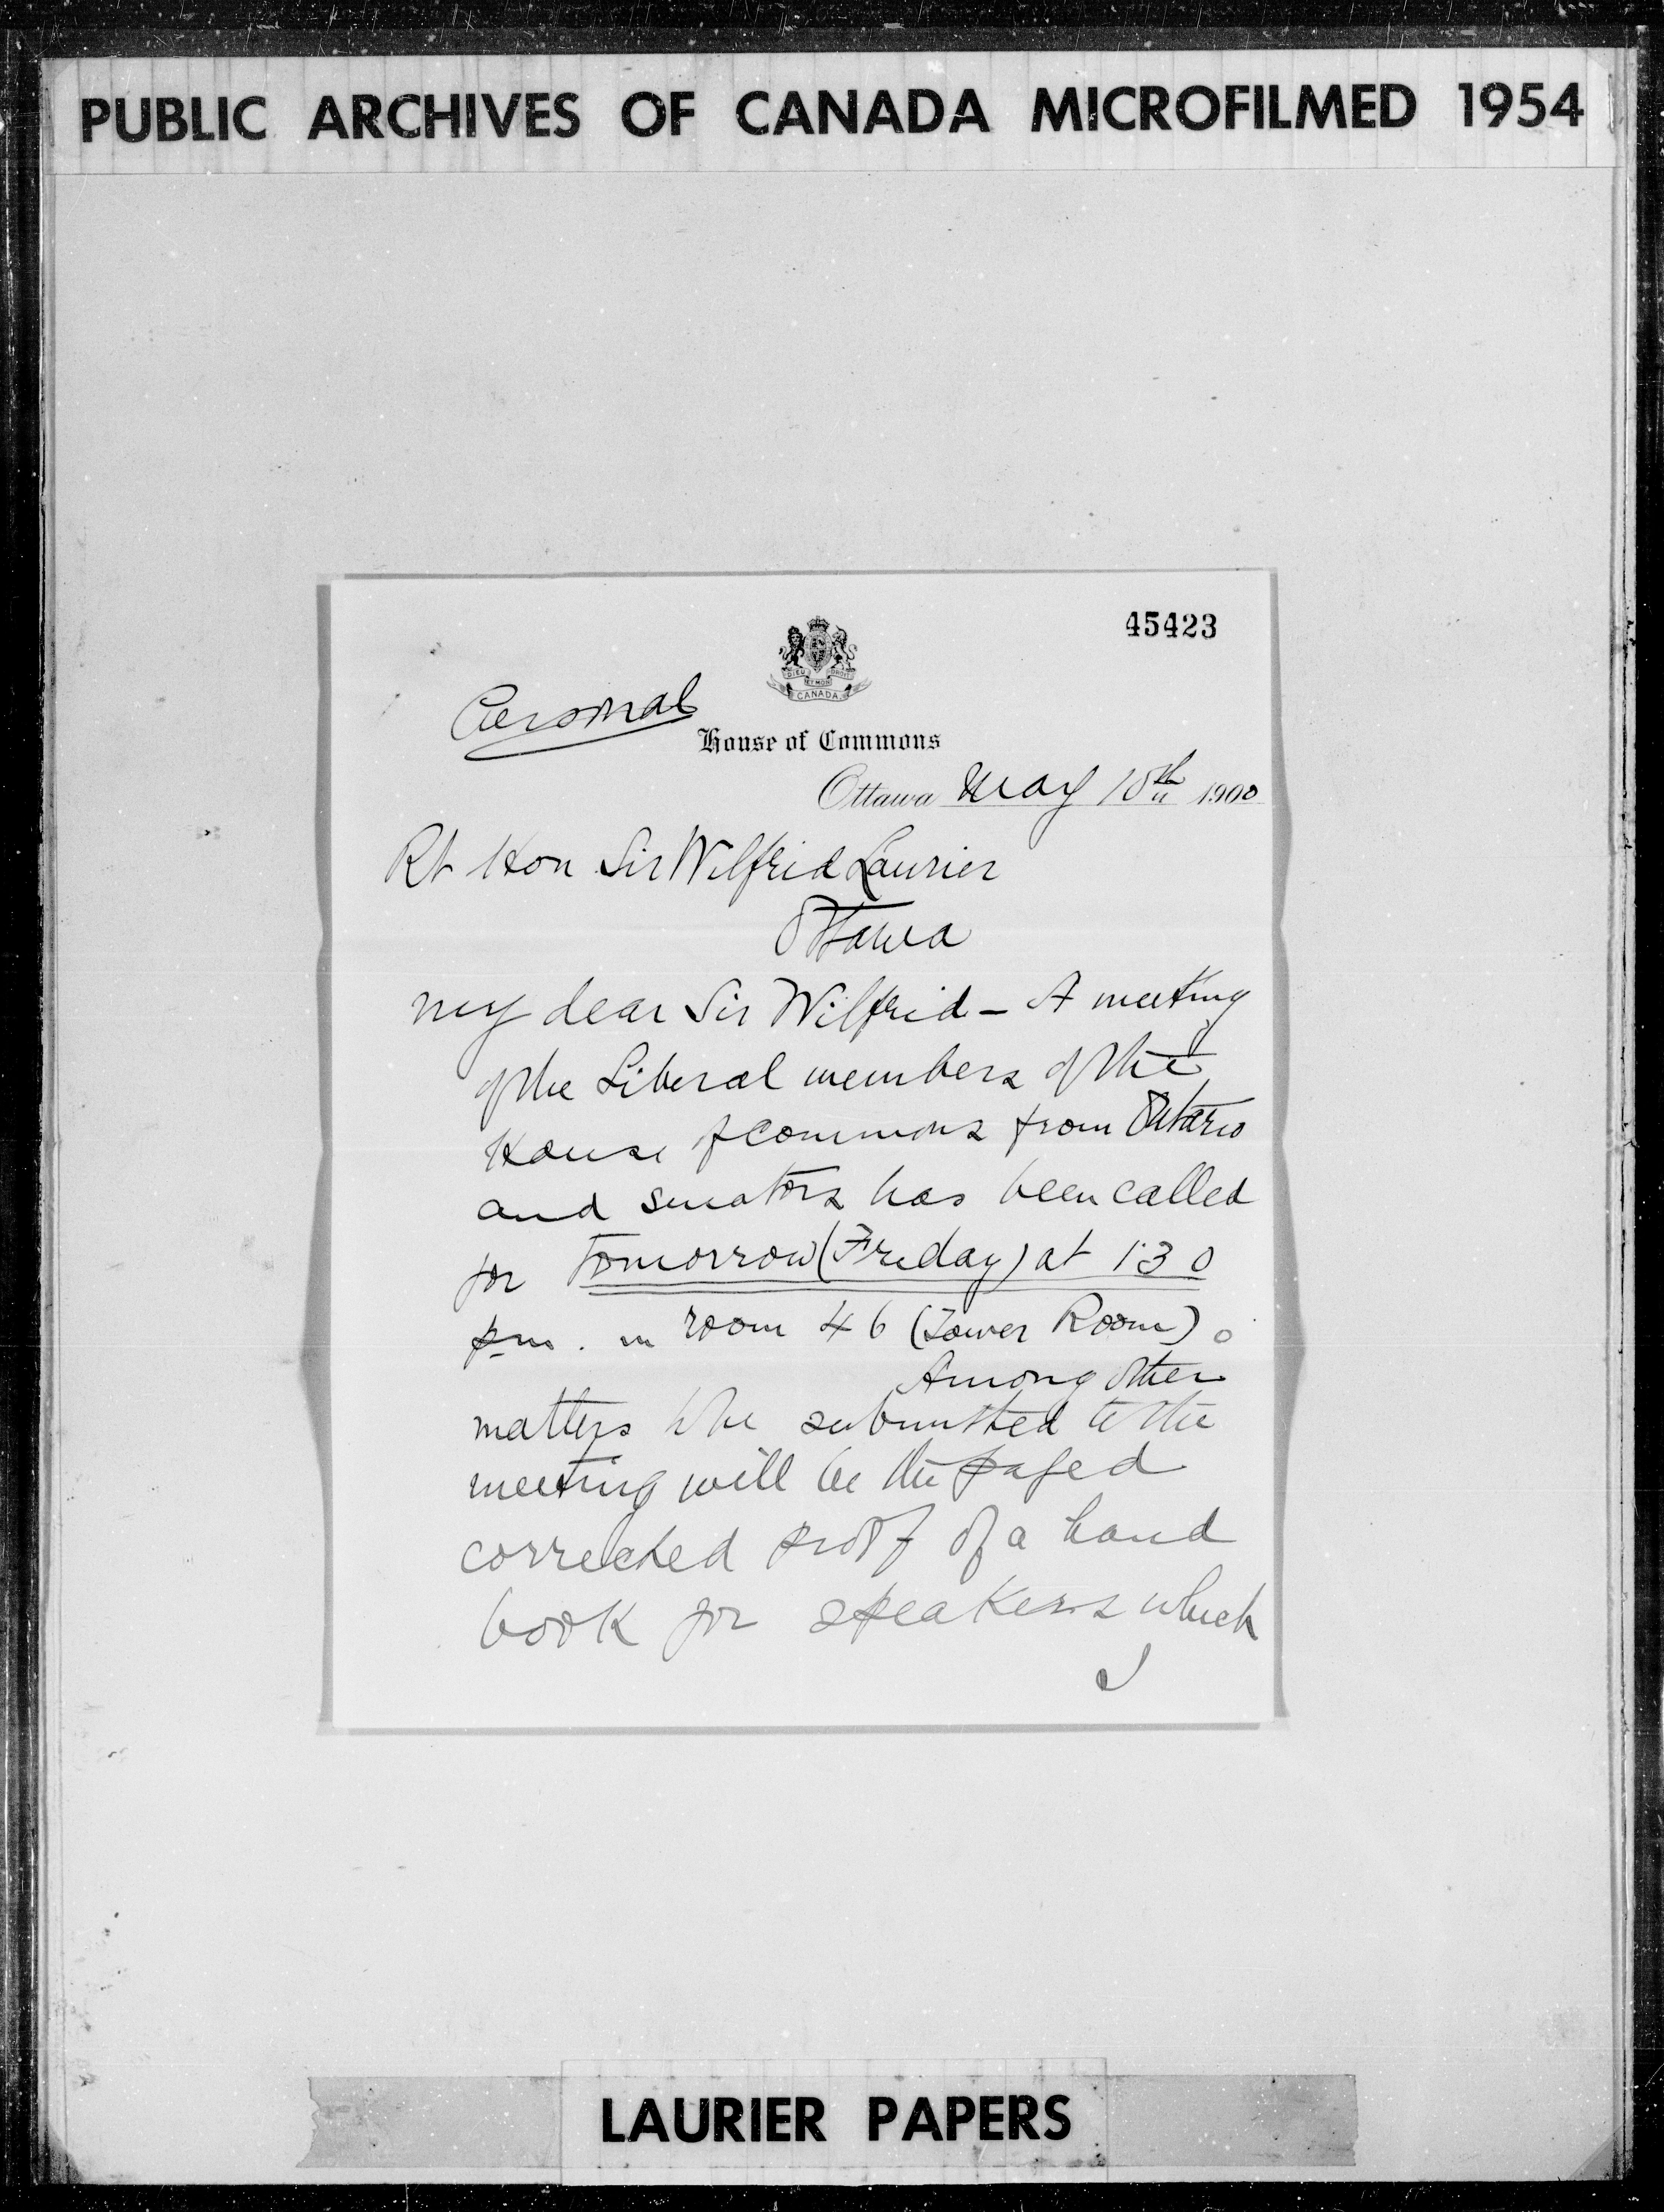 PUBLIC ARCHIVES OF CANADA MICROFILMED 1954
45423
DIEU ET MON DROIT
CANADA
Personal
House of Commons
Ottawa May 10th 1900
Rt Hon Sir Wilfrid Laurier
Ottawa
My dear Sir Wilfrid – A meeting
of the Liberal members of the
House of Commons from Ontario
and senators has been called
for tomorrow (Friday) at 1:30
pm. in room 46 (Tower Room).
Among other
matters to be submitted to the
meeting will be the paged
corrected proof of a hand
book for speakers which
I
LAURIER PAPERS